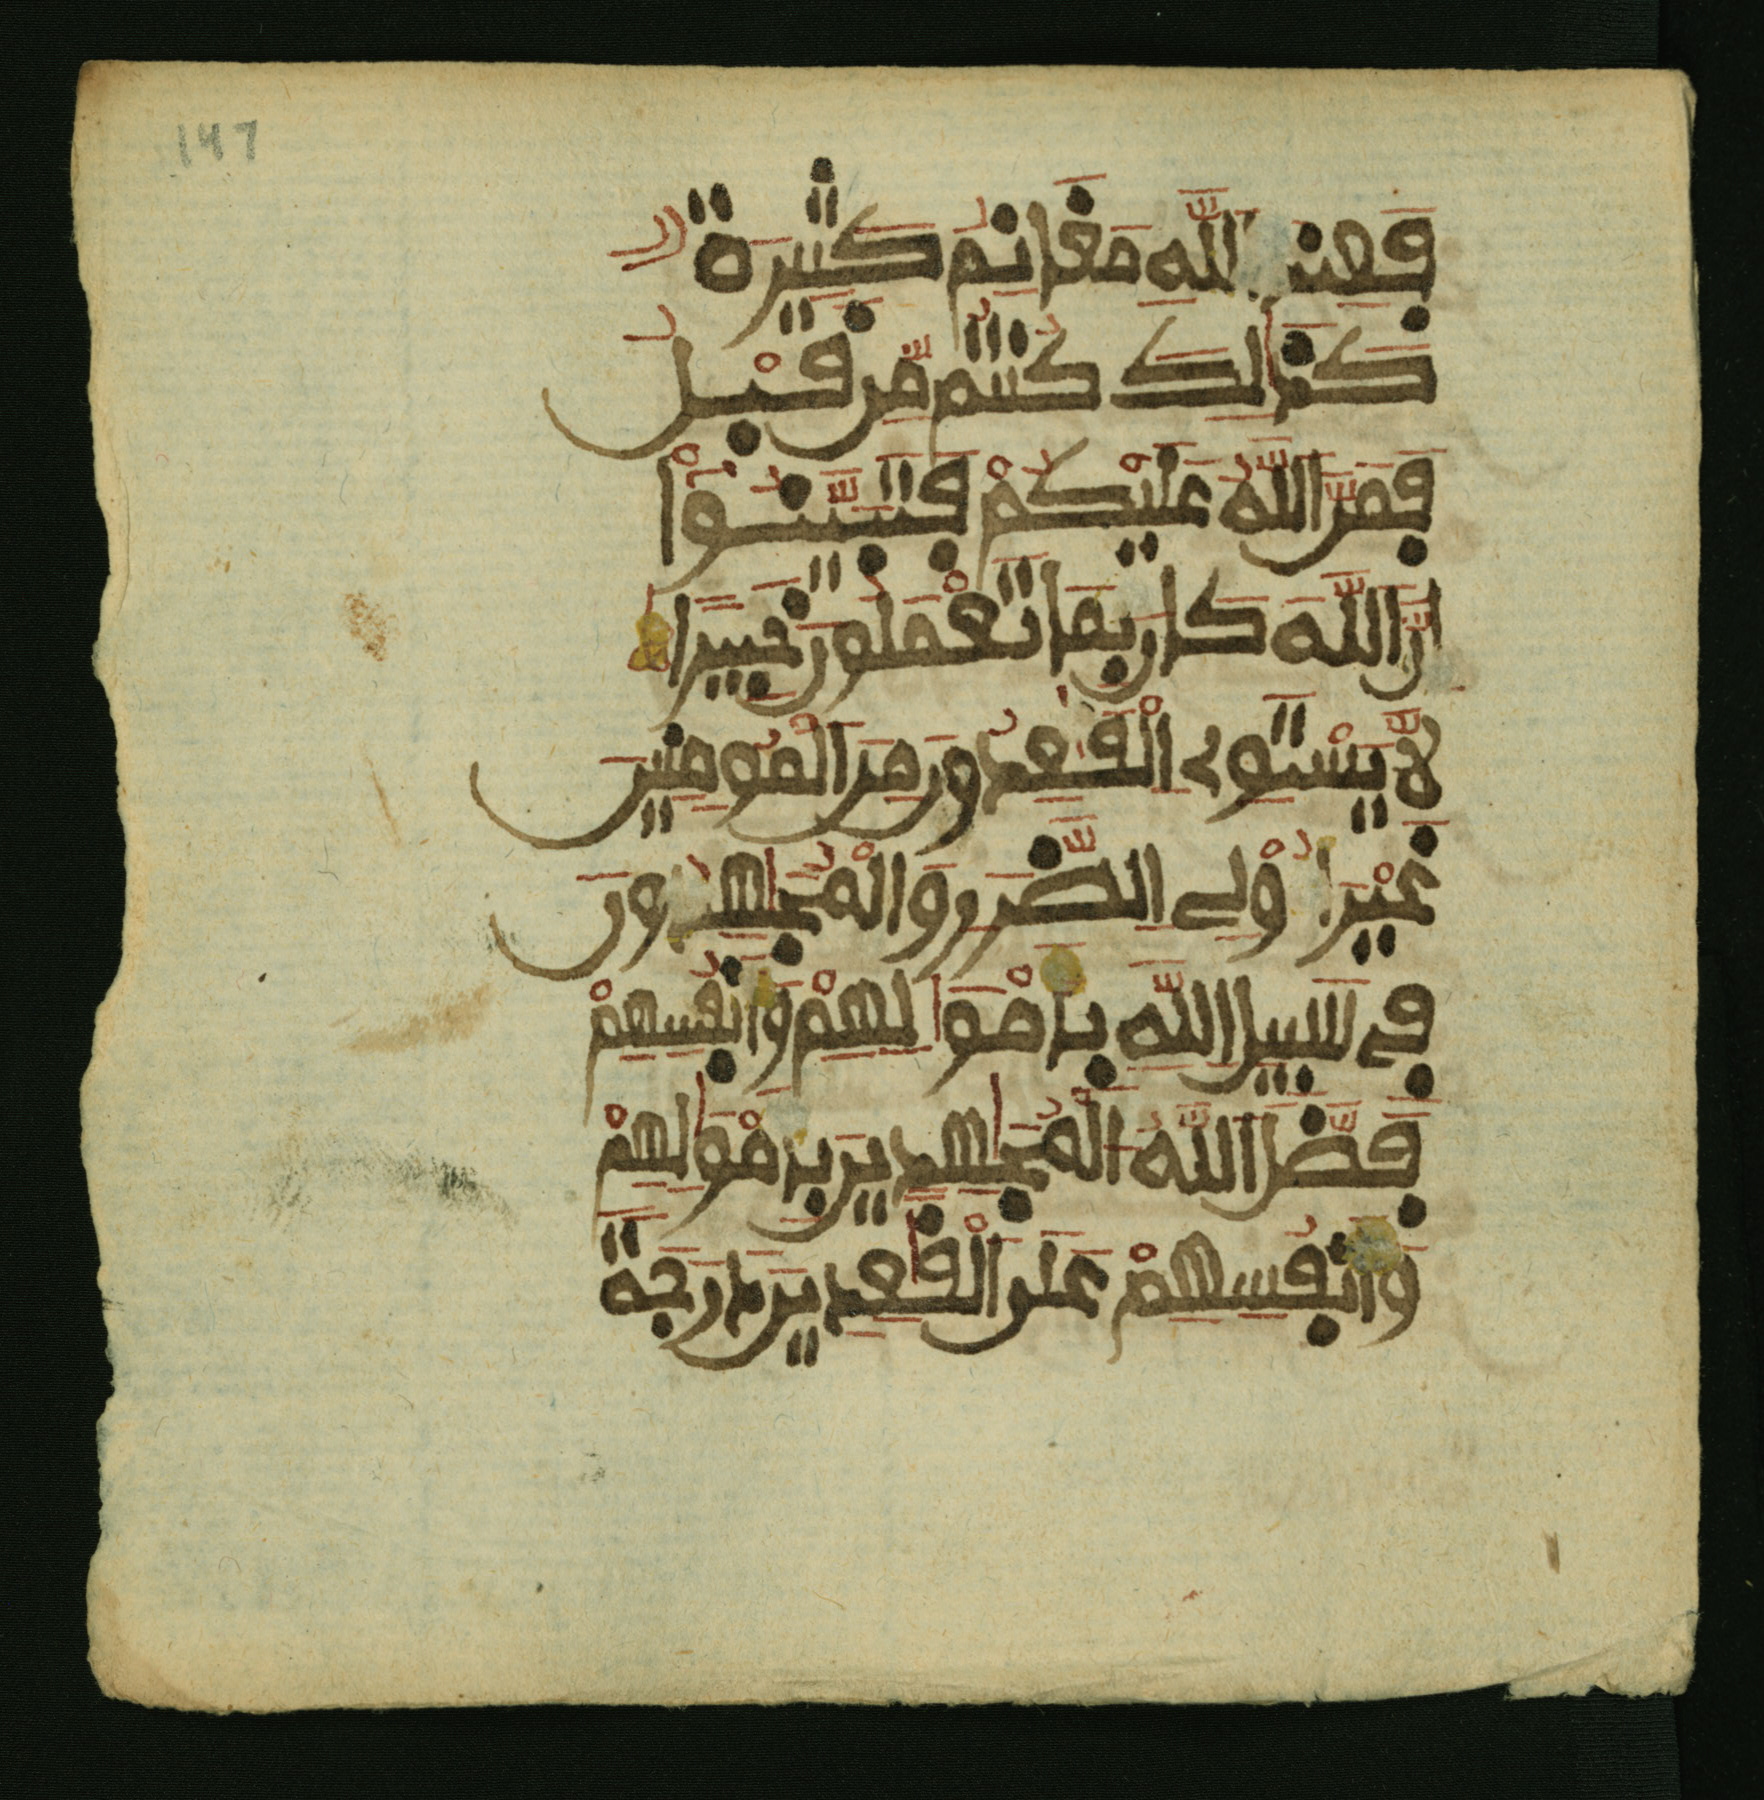 147
فَعِندَ اللَّهِ مَغَانِمُ كَثِيرَةٌ
كَذَٰلِكَ كُنتُم مِّن قَبْلُ
فَمَنَّ اللَّهُ عَلَيْكُمْ فَتَبَيَّنُوا
إِنَّ اللَّهَ كَانَ بِمَا تَعْمَلُونَ خَبِيرًا
لَّا يَسْتَوِى الْقَٰعِدُونَ مِنَ الْمُومِنِينَ
غَيْرَ أُوْلِى الضَّرَرِ وَالْمُجَٰهِدُونَ
فِى سَبِيلِ اللَّهِ بِأَمْوَٰلِهِمْ وَأَنفُسِهِمْ
فَضَّلَ اللَّهُ الْمُجَٰهِدِينَ بِأَمْوَٰلِهِمْ
وَأَنفُسِهِمْ عَلَى الْقَٰعِدِينَ دَرَجَةً